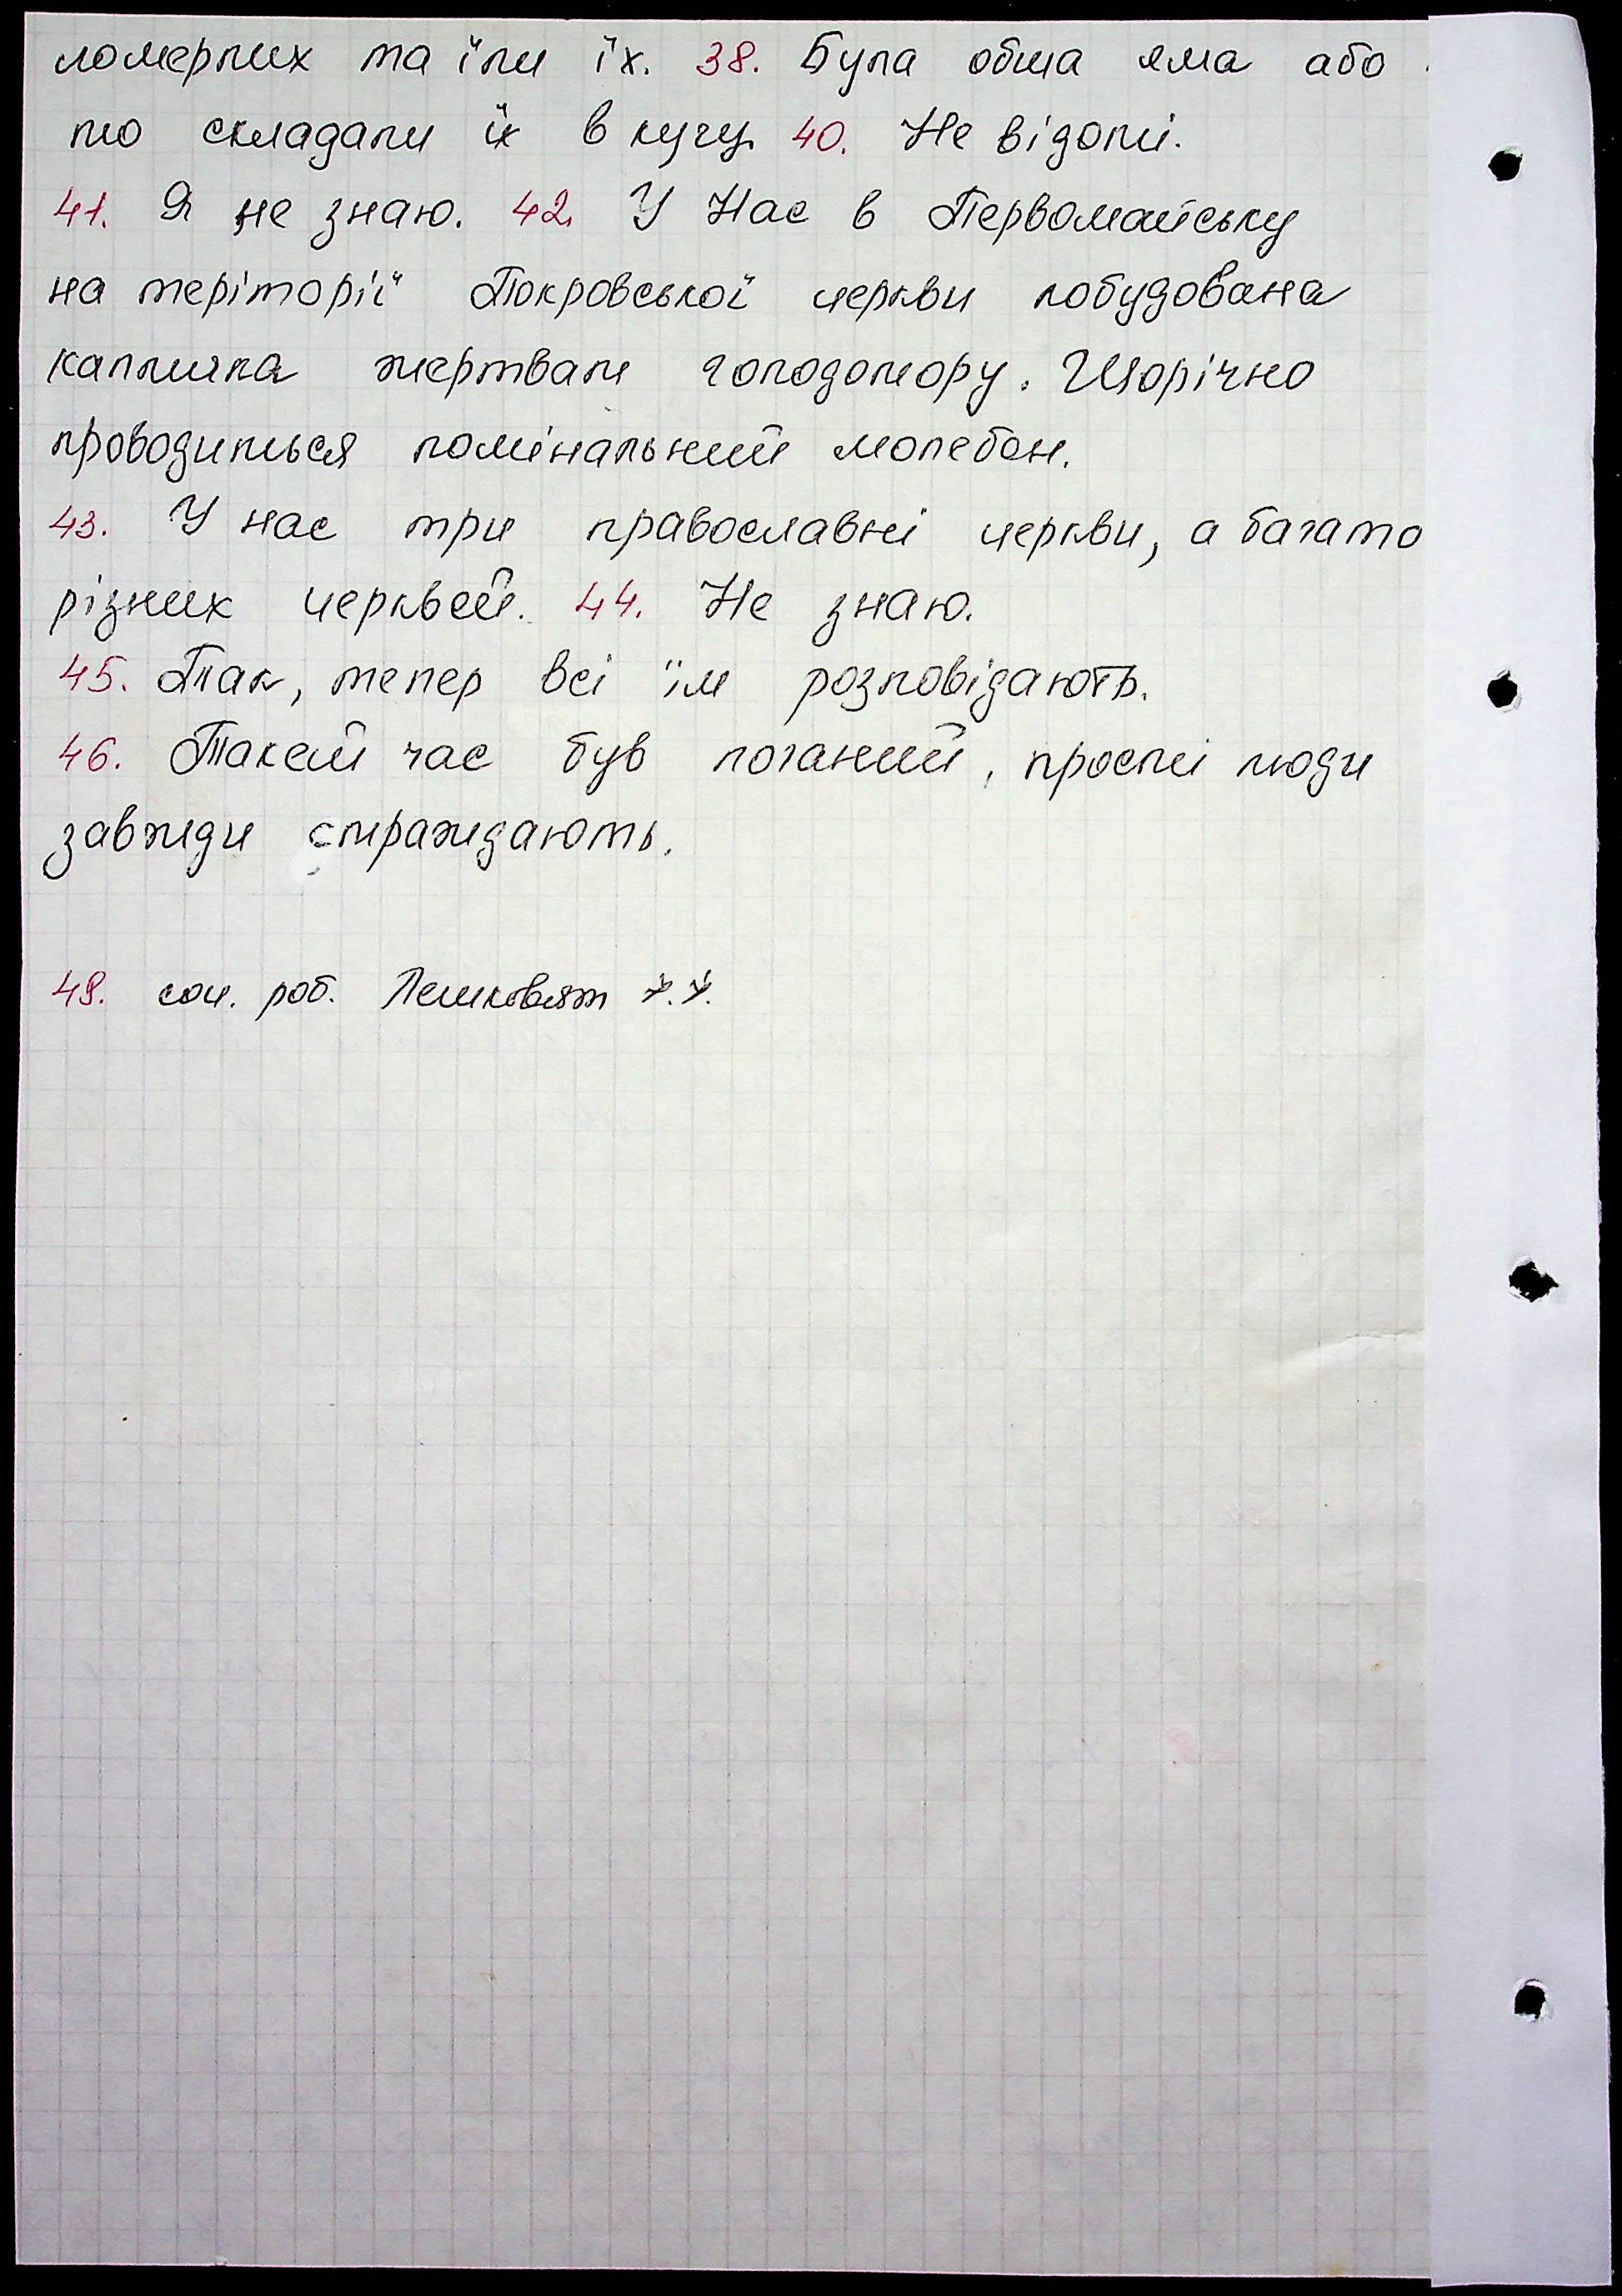 померлих та їли їх. 38. Була обща яма або
то складали їх в кучу. 40. Не відомі.
41. Я не знаю. 42. У Нас в Первомайську
на теріторії Покровської церкви побудована
капличка жертвам голодомору. Щорічно
проводиться помінальний молебон.
43. У нас три православні церкви, а багато
різних церквей. 44. Не знаю.
45. Так, тепер всі їм розповідають.
46. Такей час був поганий, прості люди
завжди страждають.
49. соц. роб.